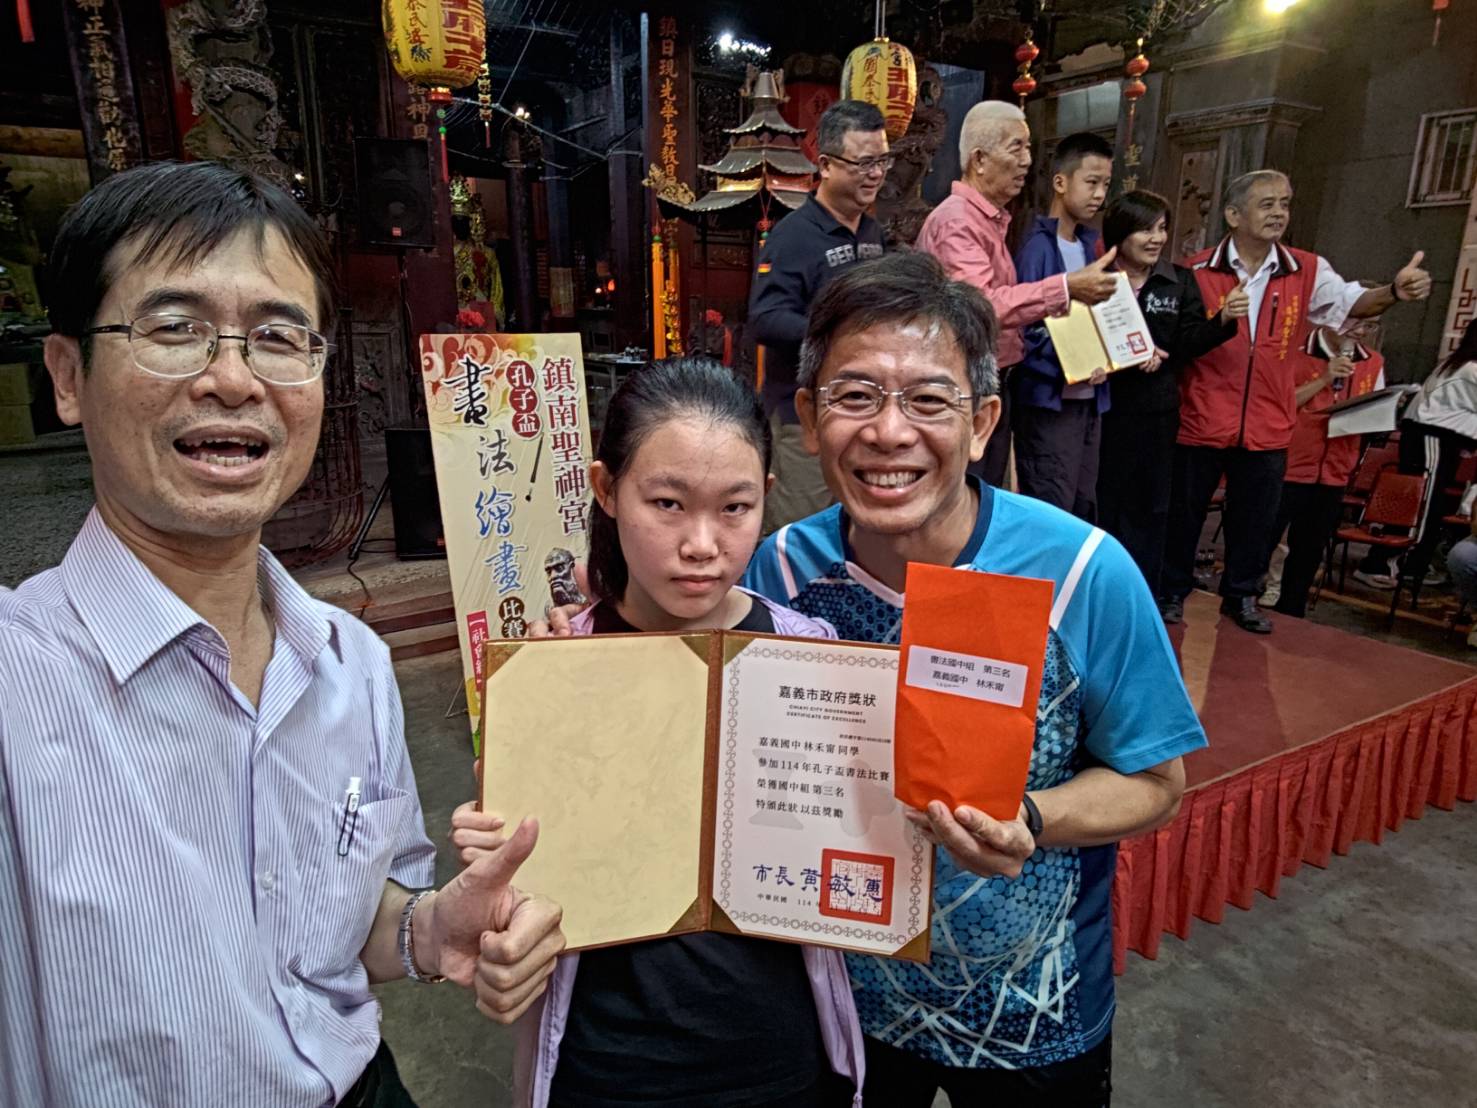 鎮日現光華聖教日
國泰
GER
鎮南聖神宮
孔子盃
書法
繪畫
比賽
嘉義市政府獎狀
CHIAYI CITY GOVERNMENT
CERTIFICATE OF EXCELLENCE
嘉義國中 林禾甯 同學
參加 114 年孔子盃書法比賽
榮獲國中組 第三名
特頒此狀 以茲獎勵
市長 黃敏惠
中華民國 114 年
書法國中組 第三名
嘉義國中 林禾甯